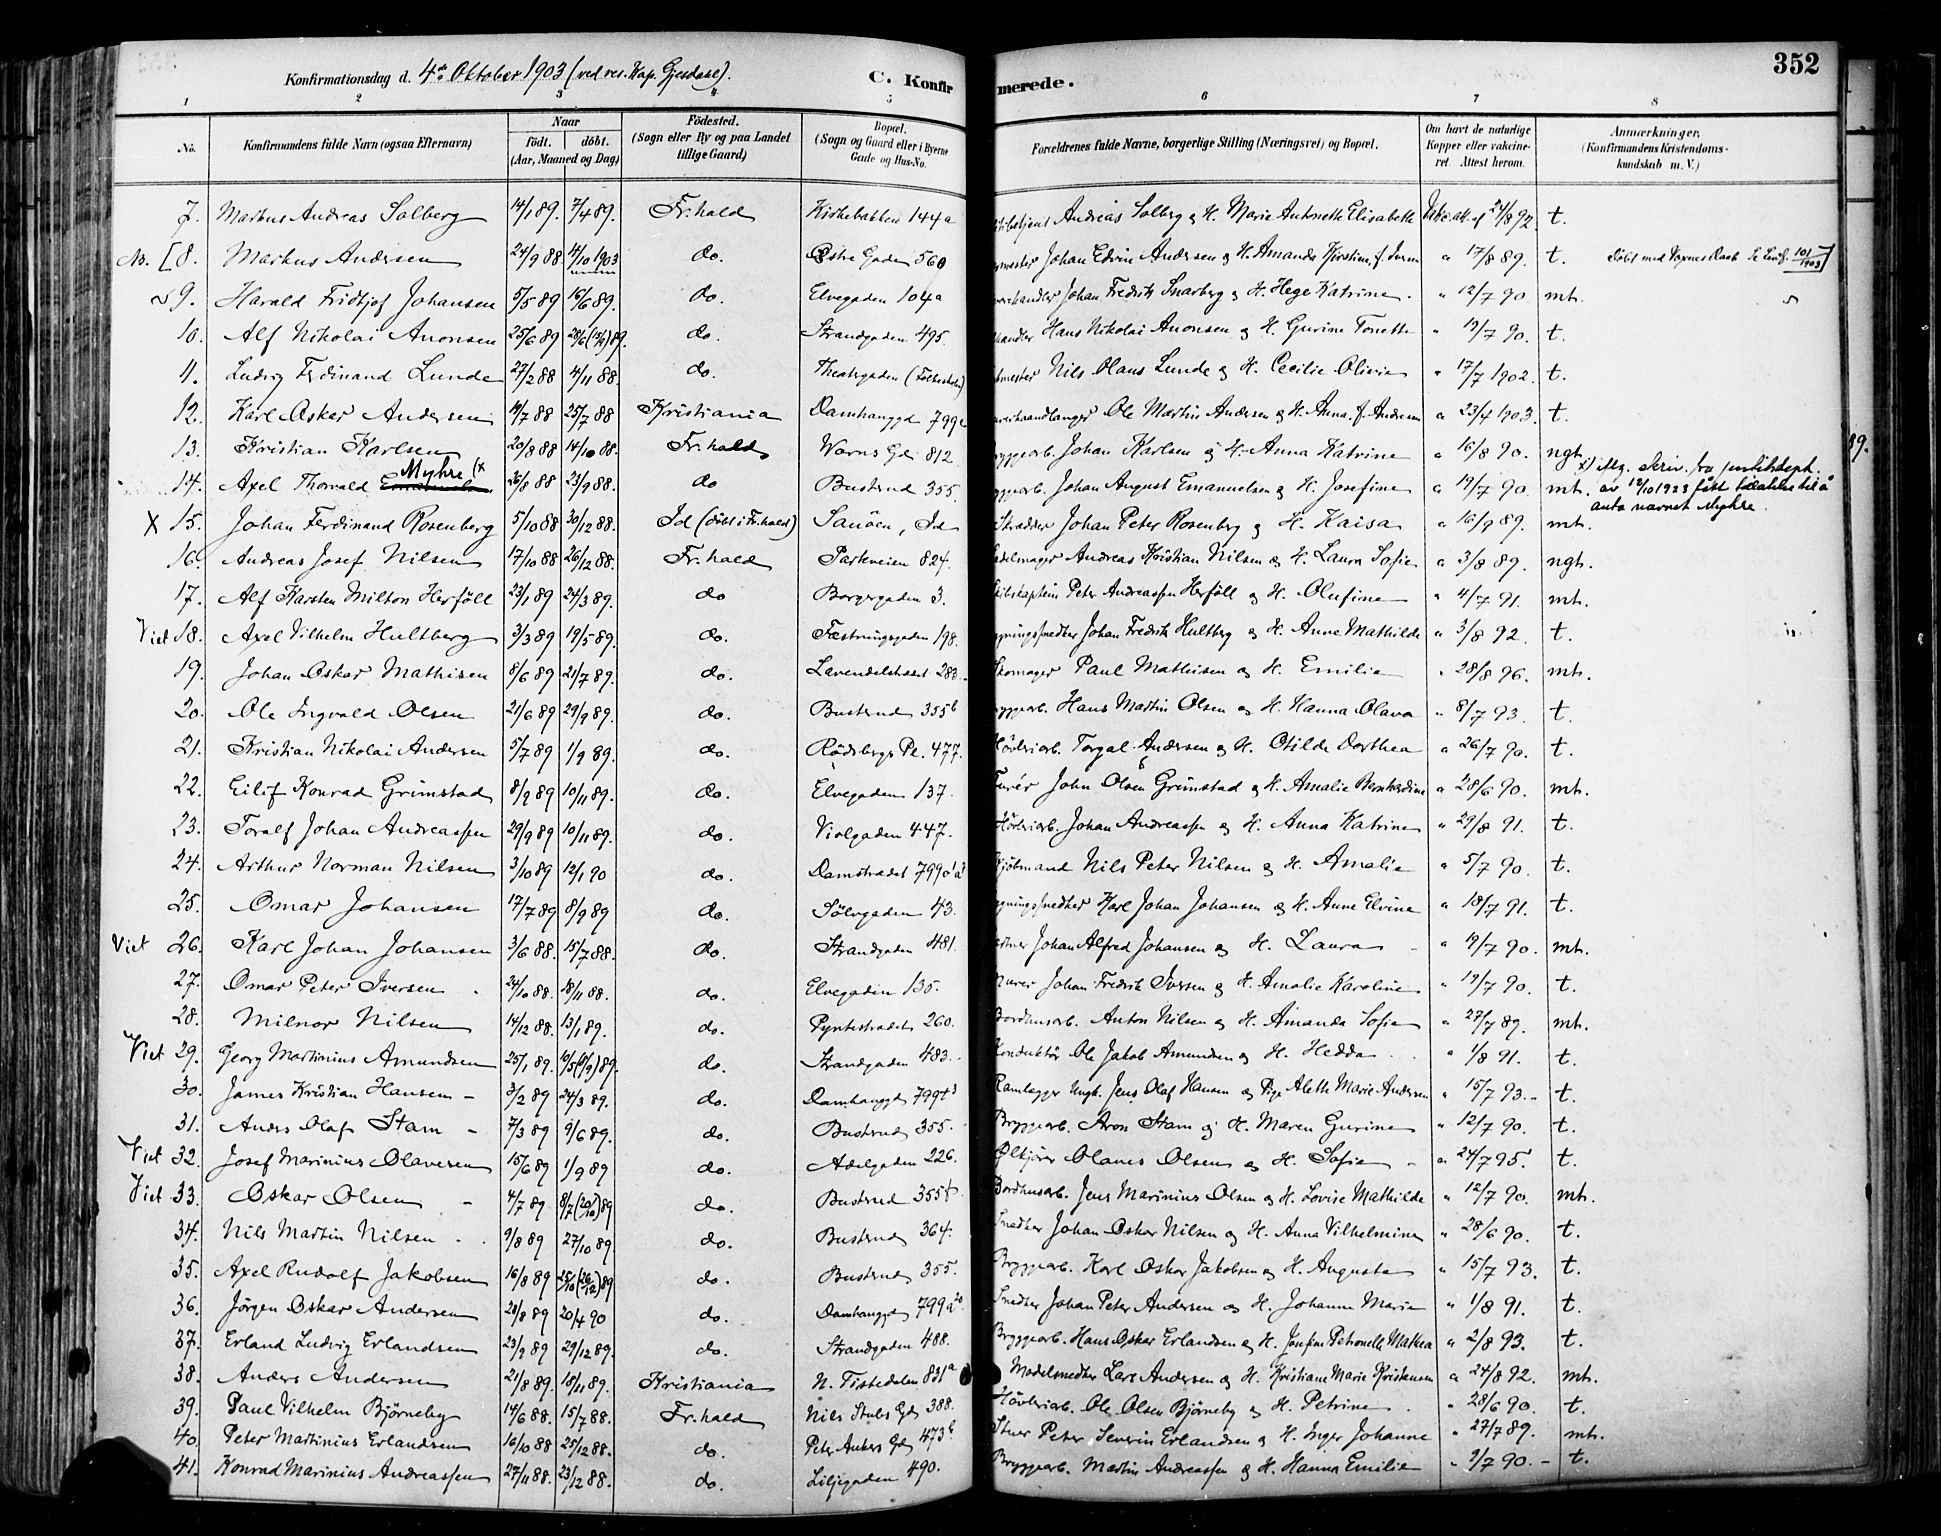 Konfirmationsdag d. 4de Oktober 1903 (ved res. Kap. Gjesdahl). C. Konfir merede. 352
1 2 3 4 5 6 7 8
No. Konfirmandens fulde Navn (ogsaa Efternavn) Naar født. døbt. (Aar, Maaned og Dag) Fødested. (Sogn eller By og paa Landet tillige Gaard) Bopæl. (Sogn og Gaard eller i Byerne Gade og Hus-No. Forældrenes fulde Navne, borgerlige Stilling (Næringsvei) og Bopæl. Om havt de naturlige Kopper eller vaccineret. Attest herom. Anmærkninger. (Konfirmandens Kristendomskundskab m. V.)
7. Markus Andreas Solberg 14/1 89. 7/4 89. Fr.hald Kirkebakken 144a Andreas Solberg og H. Marie Antonette Elisabeth 24/8 92. t.
No. [8. Markus Andersen 24/9 88 4/10 1903 do. Østre Gaden 560 Johan Edvin Andersen og H. Amanda Kirstine, f. Iversen " 17/8 89. t. Døbt med 10/1903]
9. Harald Fridtjof Johansen 5/5 89 16/6 89. do. Elvegaden 104a Johan Fredrik Snarberg og H. Hege Katrine. " 12/7 90. mt.
10. Alf Nikolai Aronsen 25/6 89 do. Strandgaden 495. Hans Nikolai Aronsen og H. Gurine Tonette " 19/7 90. t.
11. Ludvig Ferdinand Lunde 27/2 88 4/11 88. do. Theatergaden Nils Olaus Lunde og H. Cecilie Olivia " 17/7 1902. t.
12. Karl Oskar Andersen 19/7 88 25/7 88 Kristiania Damhavggd 799 Ole Martin Andersen og H. Anna, f. Andersen " 23/4 1903. t.
13. Kristian Karlsen 20/8 88 14/10 88. Fr.hald Worns Gd. 812 Johan Karlsen og H. Anna Katrine " 16/8 90. ngt.
14. Axel Thorvald Emanuelsen Myhre (x 26/8 88 23/9 88. do Busterud 355. Johan August Emanuelsen og H. Josefine " 19/7 90. mt. x) iflg. skriv. fra justitsdept. av 12/10 1923 fåt tilladelse til å anta navnet Myhre.
X 15. Johan Ferdinand Rosenberg 5/10 88 30/12 88. Id (døbt i Fr.hald) Sanøen, Id Johan Peter Rosenberg og H. Kaisa " 16/9 89. mt.
16. Andreas Josef Nilsen 17/10 88 26/12 88. Fr.hald Parkveien 824. Andreas Kristian Nilsen og H. Laura Sofie " 3/8 89. ngt.
17. Alf Karsten Milton Herføll 23/1 89 24/3 89. do Borgergaden 3. Peter Andreassen Herføll og H. Olufine " 4/7 91. mt.
Viet 18. Axel Vilhelm Hultberg 3/3 89 19/5 89. do. Fæstningsgaden 198. Johan Fredrik Hultberg og H. Anne Mathilde " 3/8 92. t.
19. Johan Oskar Mathisen 8/6 89 21/7 89. do. Lavendelstrædet 283. Skomager Paul Mathisen og H. Emilie " 28/8 96. mt.
20. Ole Ingvald Olsen 21/6 89 29/9 89. do. Busterud 355b Hans Martin Olsen og H. Hanna Olava " 8/7 93. t.
21. Kristian Nikolai Andersen 5/7 89 1/9 89. do. Rødsbergs Pl. 477. Høvleriarb. Torgal Andersen og H. Otilde Dorthea " 26/7 90. t.
22. Eilif Konrad Grimstad 8/9 89 10/11 89. do. Elvegaden 137. Furér John Olsen Grimstad og H. Amalie Bernhardine " 28/6 90. mt.
23. Toralf Johan Andreassen 29/9 89 10/11 89. do. Violgaden 447. Høvleriarb. Johan Andreassen og H. Anna Katrine " 29/8 91. t.
24. Arthur Norman Nilsen 3/10 89 12/1 90 do. Damstrædet 799 Kjøbmand Nils Peter Nilsen og H. Amalie " 5/7 90. t.
25. Omar Johansen 17/7 89 8/9 89 do. Sølvgaden 43. Karl Johan Johansen og H. Anne Elvine " 18/7 91. t.
Viet 26. Karl Johan Johansen 3/6 88. 15/7 88. do. Strandgaden 481. Johan Alfred Johansen og H. Laura " 19/7 90. mt.
27. Omar Peter Iversen 24/10 88. 18/11 88. do. Elvegaden 135. Murer Johan Fredrik Iversen og H. Amalie Karoline " 19/7 90. t.
28. Milnor Nilsen 14/12 88. 13/1 89. do. Pyntestrædet 260. Bordhusarb. Anton Nilsen og H. Amanda Sofie " 27/7 89. mt.
Viet 29. Georg Martinius Amundsen 25/1 89. do. Strandgaden 483. Konduktør Ole Jakob Amundsen og H. Hedda " 1/8 91. t.
30. James Kristian Hansen 3/2 89 24/3 89. do. Damhavggd 799 Ramlægger Ungk. Jens Olaf Hansen og Pige Alette Marie Andersen " 15/7 93. t.
31. Anders Olaf Stam 7/3 89 9/6 89. do. Busterud 355. Bryggearb. Aron Stam og H. Maren Gurine " 12/7 90. t.
Viet 32. Josef Marinius Olavesen 15/6 89 1/9 89 do. Adelgaden 226. Ølkjører Olaves Olsen og H. Sofie " 24/7 95. t.
Viet 33. Oskar Olsen 4/7 89 do. Busterud 355 Bordhusarb. Jens Marinius Olsen og H. Lovise Mathilde " 12/7 90. mt.
34. Nils Martin Nilsen 9/8 89 27/10 89. do. Busterud 364. Snedker Johan Oskar Nilsen og H. Anna Vilhelmine " 28/6 90. t.
35. Axel Rudolf Jakobsen 16/8 89 do. Busterud 355. Bryggearb. Karl Oskar Jakobsen og H. Augusta " 15/7 93. t.
36. Jørgen Oskar Andersen 28/8 89 20/4 90 do. Damhavggd 799 Smedker Johan Peter Andersen og H. Johanne Marie " 1/8 91. t.
37. Erland Ludvig Erlandsen 23/9 89 29/12 89. do. Strandgaden 488. Bryggearb. Hans Oskar Erlandsen og H. Josefine Petronelle Mathea " 2/8 93. t.
38. Anders Andersen 21/8 89. 18/11 89. Kristiania N. Tistedalen 831a Modelsnedker Lars Andersen og H. Kristiane Marie Kristensen " 24/8 92. mt.
39. Paul Vilhelm Bjørneby 14/6 88. 15/7 88. Fr.hald Nils Stubs Gd. 388. Høvleriarb. Ole Olsen Bjørneby og H. Petrine " 28/6 90. t.
40. Peter Martinius Erlandsen 16/10 88 25/12 88. do. Peter Ankers Gd. 473b Stuer Peter Severin Erlandsen og H. Inger Johanne " 27/7 89. mt.
41. Konrad Marinius Andreassen 27/11 88. 23/12 88. do. Liljegaden 490. Bryggearb. Martin Andreassen og H. Hanna Emilie " 9/7 90. t.